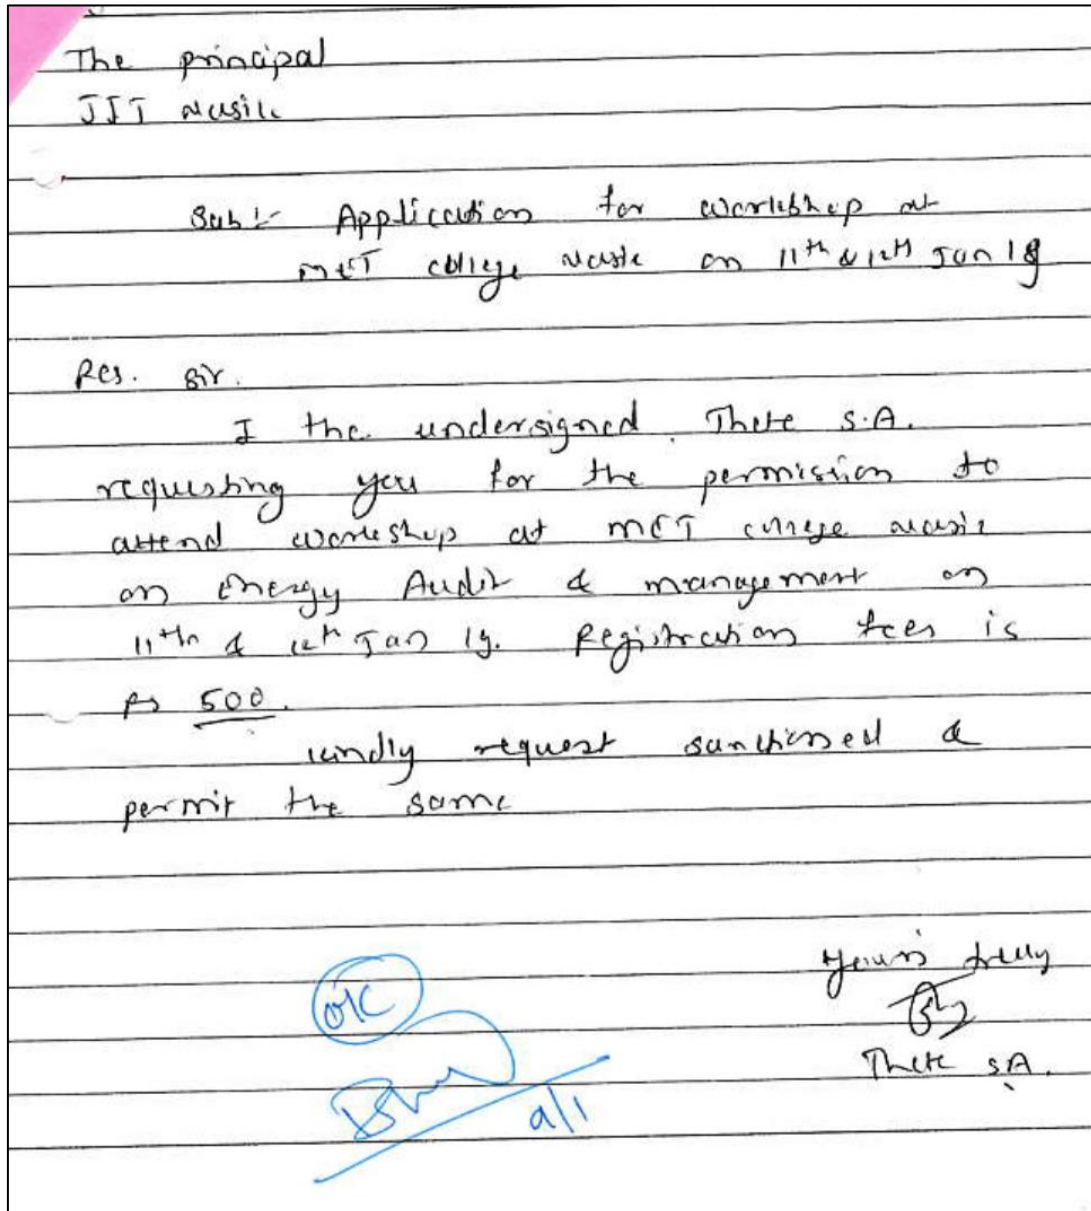 The principal
JIT Nasik
Sub:- Application for workshop at
MET college Nasik on 11th & 12th Jan 19
Res. Sir.
I the undersigned Thete S.A.
requesting you for the permission to
attend workshop at MET college Nasik
on Energy Audit & management on
11th & 12th Jan 19. Registration fees is
Rs 500.
kindly request sanctioned &
permit the same
Yours truly
Thete S.A.
OK
9/1